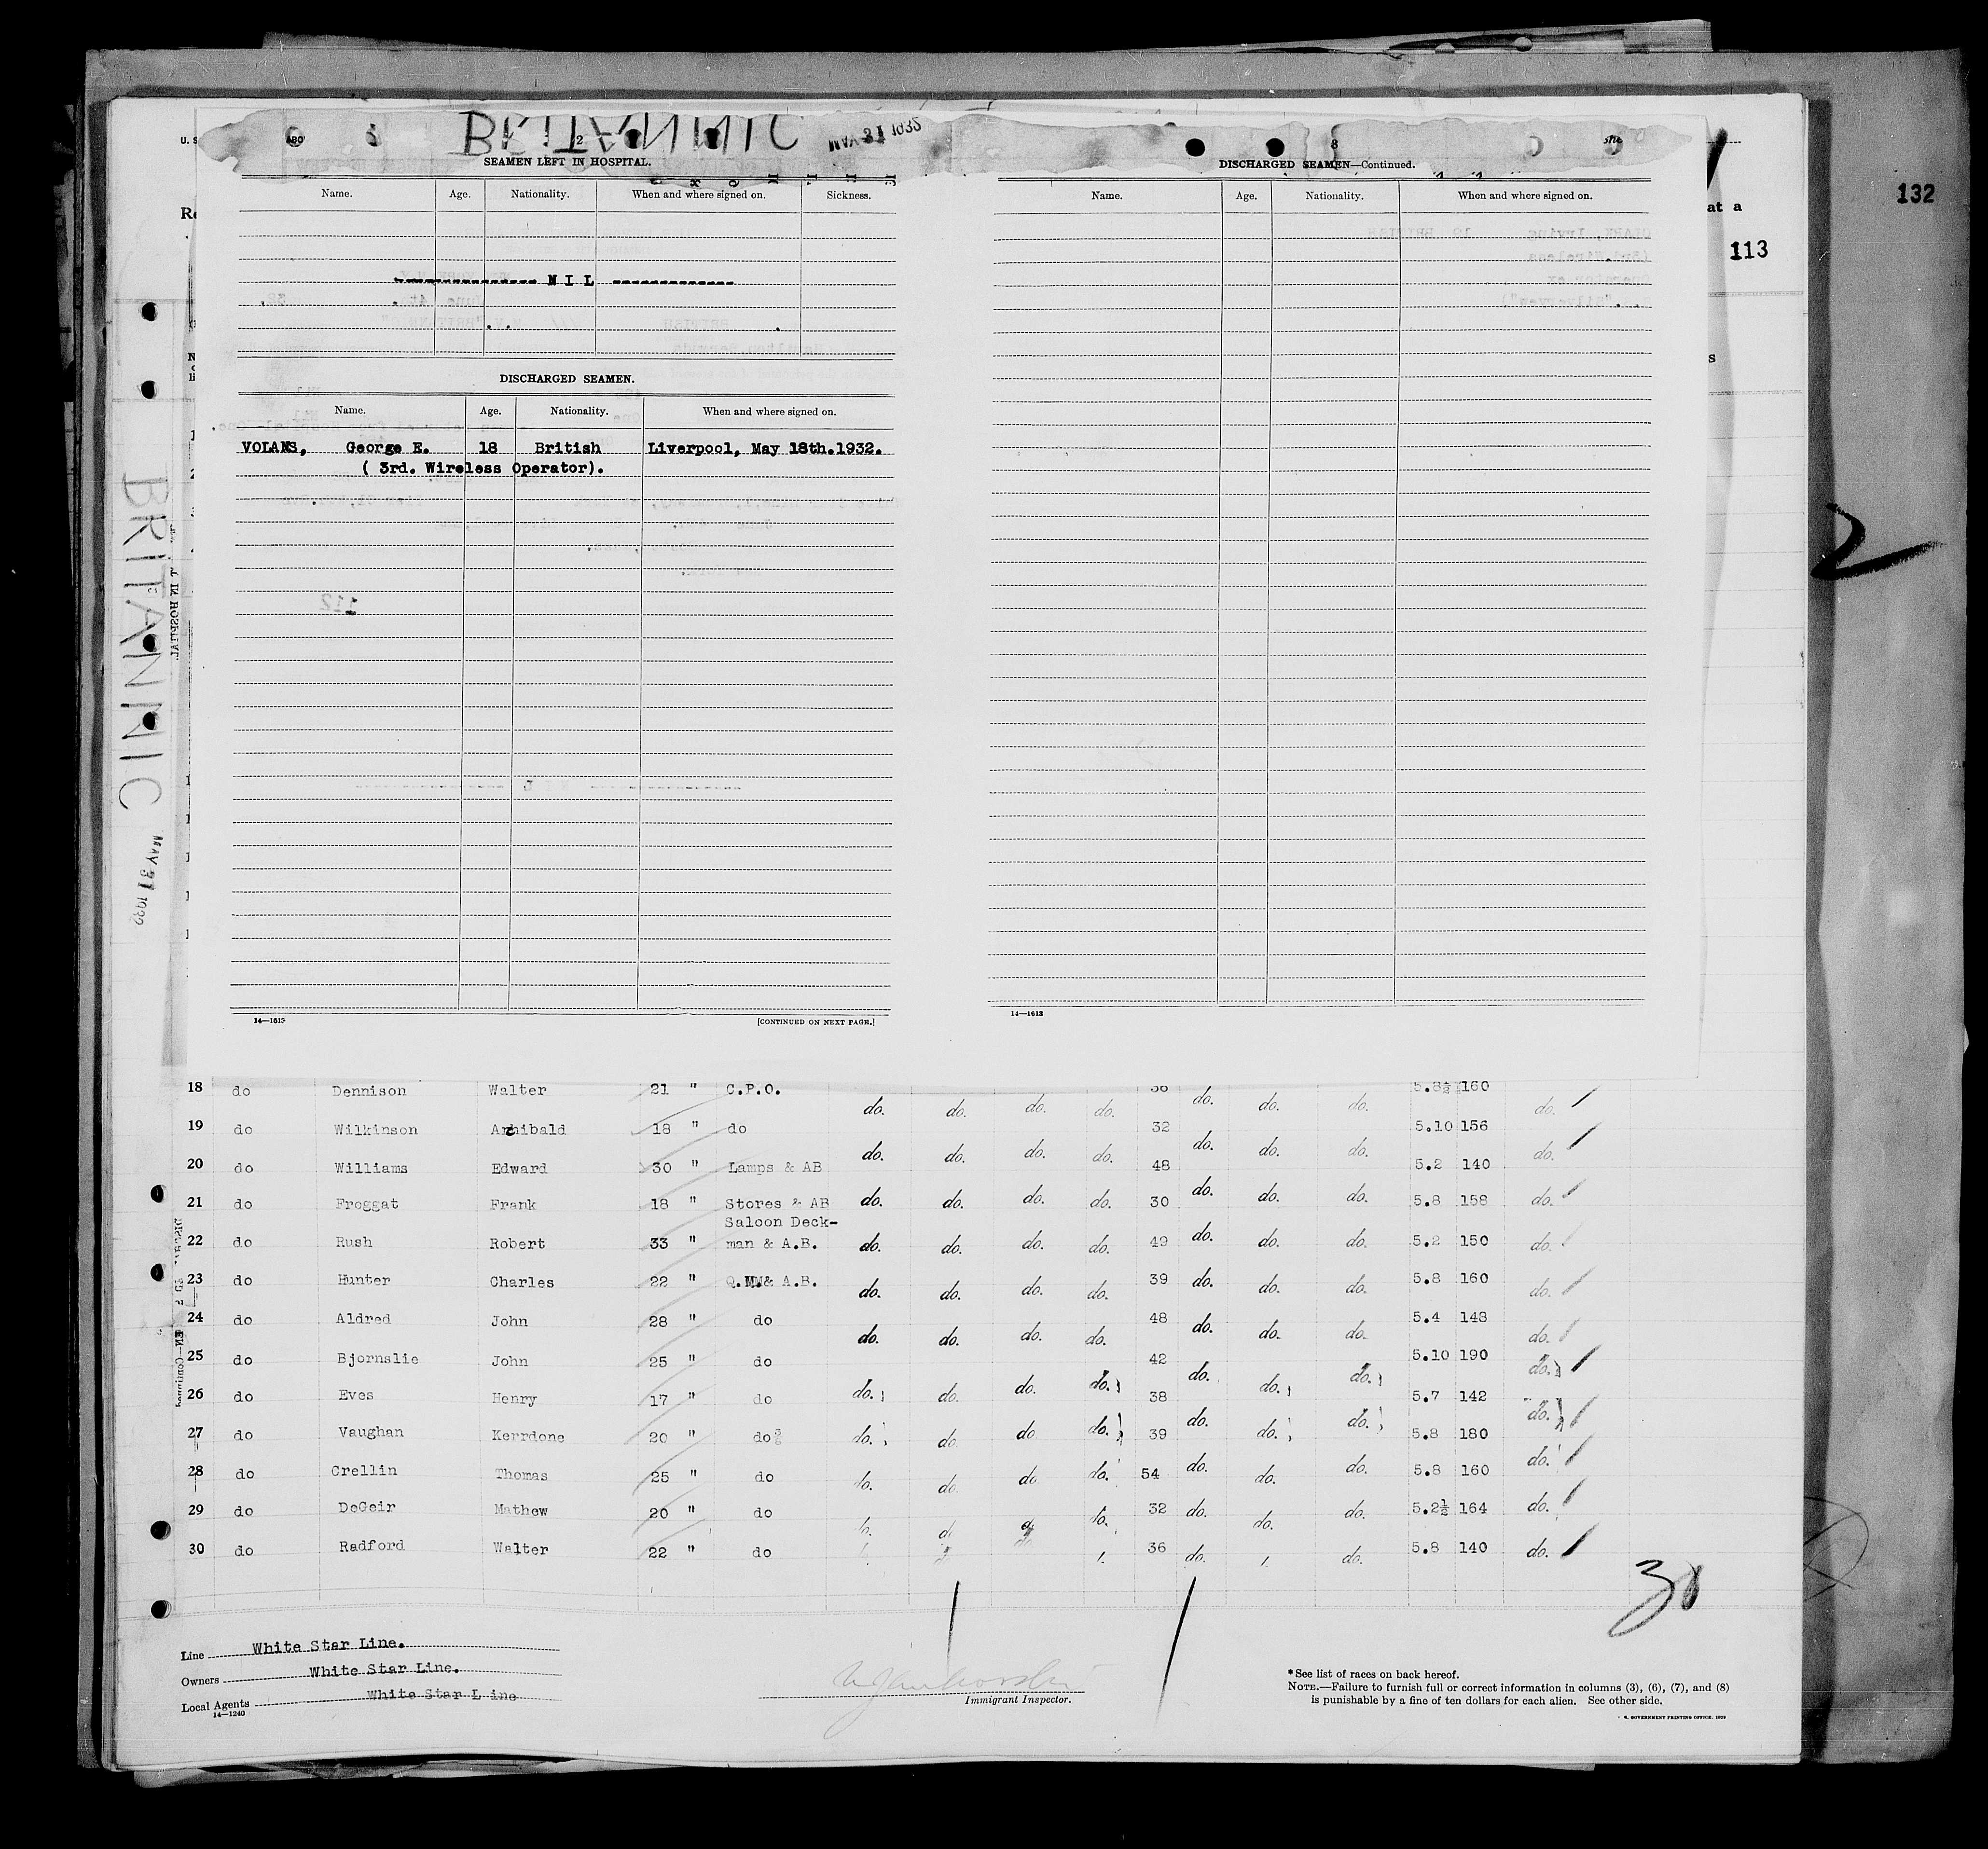 BRITANNIC MAY 31 1932
2
SEAMEN LEFT IN HOSPITAL.
Name. Age. Nationality. When and where signed on. Sickness.
NIL
DISCHARGED SEAMEN.
Name. Age. Nationality. When and where signed on.
VOLANS, George E. 18 British Liverpool, May 18th.1932.
( 3rd. Wireless Operator).
14—1613 [CONTINUED ON NEXT PAGE.]
8
DISCHARGED SEAMEN—Continued.
Name. Age. Nationality. When and where signed on.
14—1613
at a
132
113
2
BRITANNIC MAY 31 1932
18 do Dennison Walter 21 " C.P.O. do. do. do. do. 36 do. do. do. 5.8½ 160 do.
19 do Wilkinson Archibald 18 " do do. do. do. do. 32 do. do. do. 5.10 156 do.
20 do Williams Edward 30 " Lamps & AB do. do. do. do. 48 do. do. do. 5.2 140 do.
21 do Froggat Frank 18 " Stores & AB do. do. do. do. 30 do. do. do. 5.8 158 do.
Saloon Deck-
22 do Rush Robert 33 " man & A.B. do. do. do. do. 49 do. do. do. 5.2 150 do.
23 do Hunter Charles 22 " Q.M.& A.B. do. do. do. do. 39 do. do. do. 5.8 160 do.
24 do Aldred John 28 " do do. do. do. do. 48 do. do. do. 5.4 148 do.
25 do Bjornslie John 25 " do do. do. do. do. 42 do. do. do. 5.10 190 do.
26 do Eves Henry 17 " do do. do. do. do. 38 do. do. do. 5.7 142 do.
27 do Vaughan Kerrdone 20 " do do. do. do do. 39 do. do. do. 5.8 180 do.
28 do Crellin Thomas 25 " do do. do. do do. 54 do. do. do. 5.8 160 do.
29 do DeGeir Mathew 20 " do 32 do. do. do. 5.2½ 164 do.
30 do Radford Walter 22 " do 36 do. do. 5.8 140 do.
30
Line White Star Line.
Owners White Star Line.
Local Agents White Star Line
14—1240
Immigrant Inspector.
*See list of races on back hereof.
NOTE.—Failure to furnish full or correct information in columns (3), (6), (7), and (8)
is punishable by a fine of ten dollars for each alien. See other side.
GOVERNMENT PRINTING OFFICE